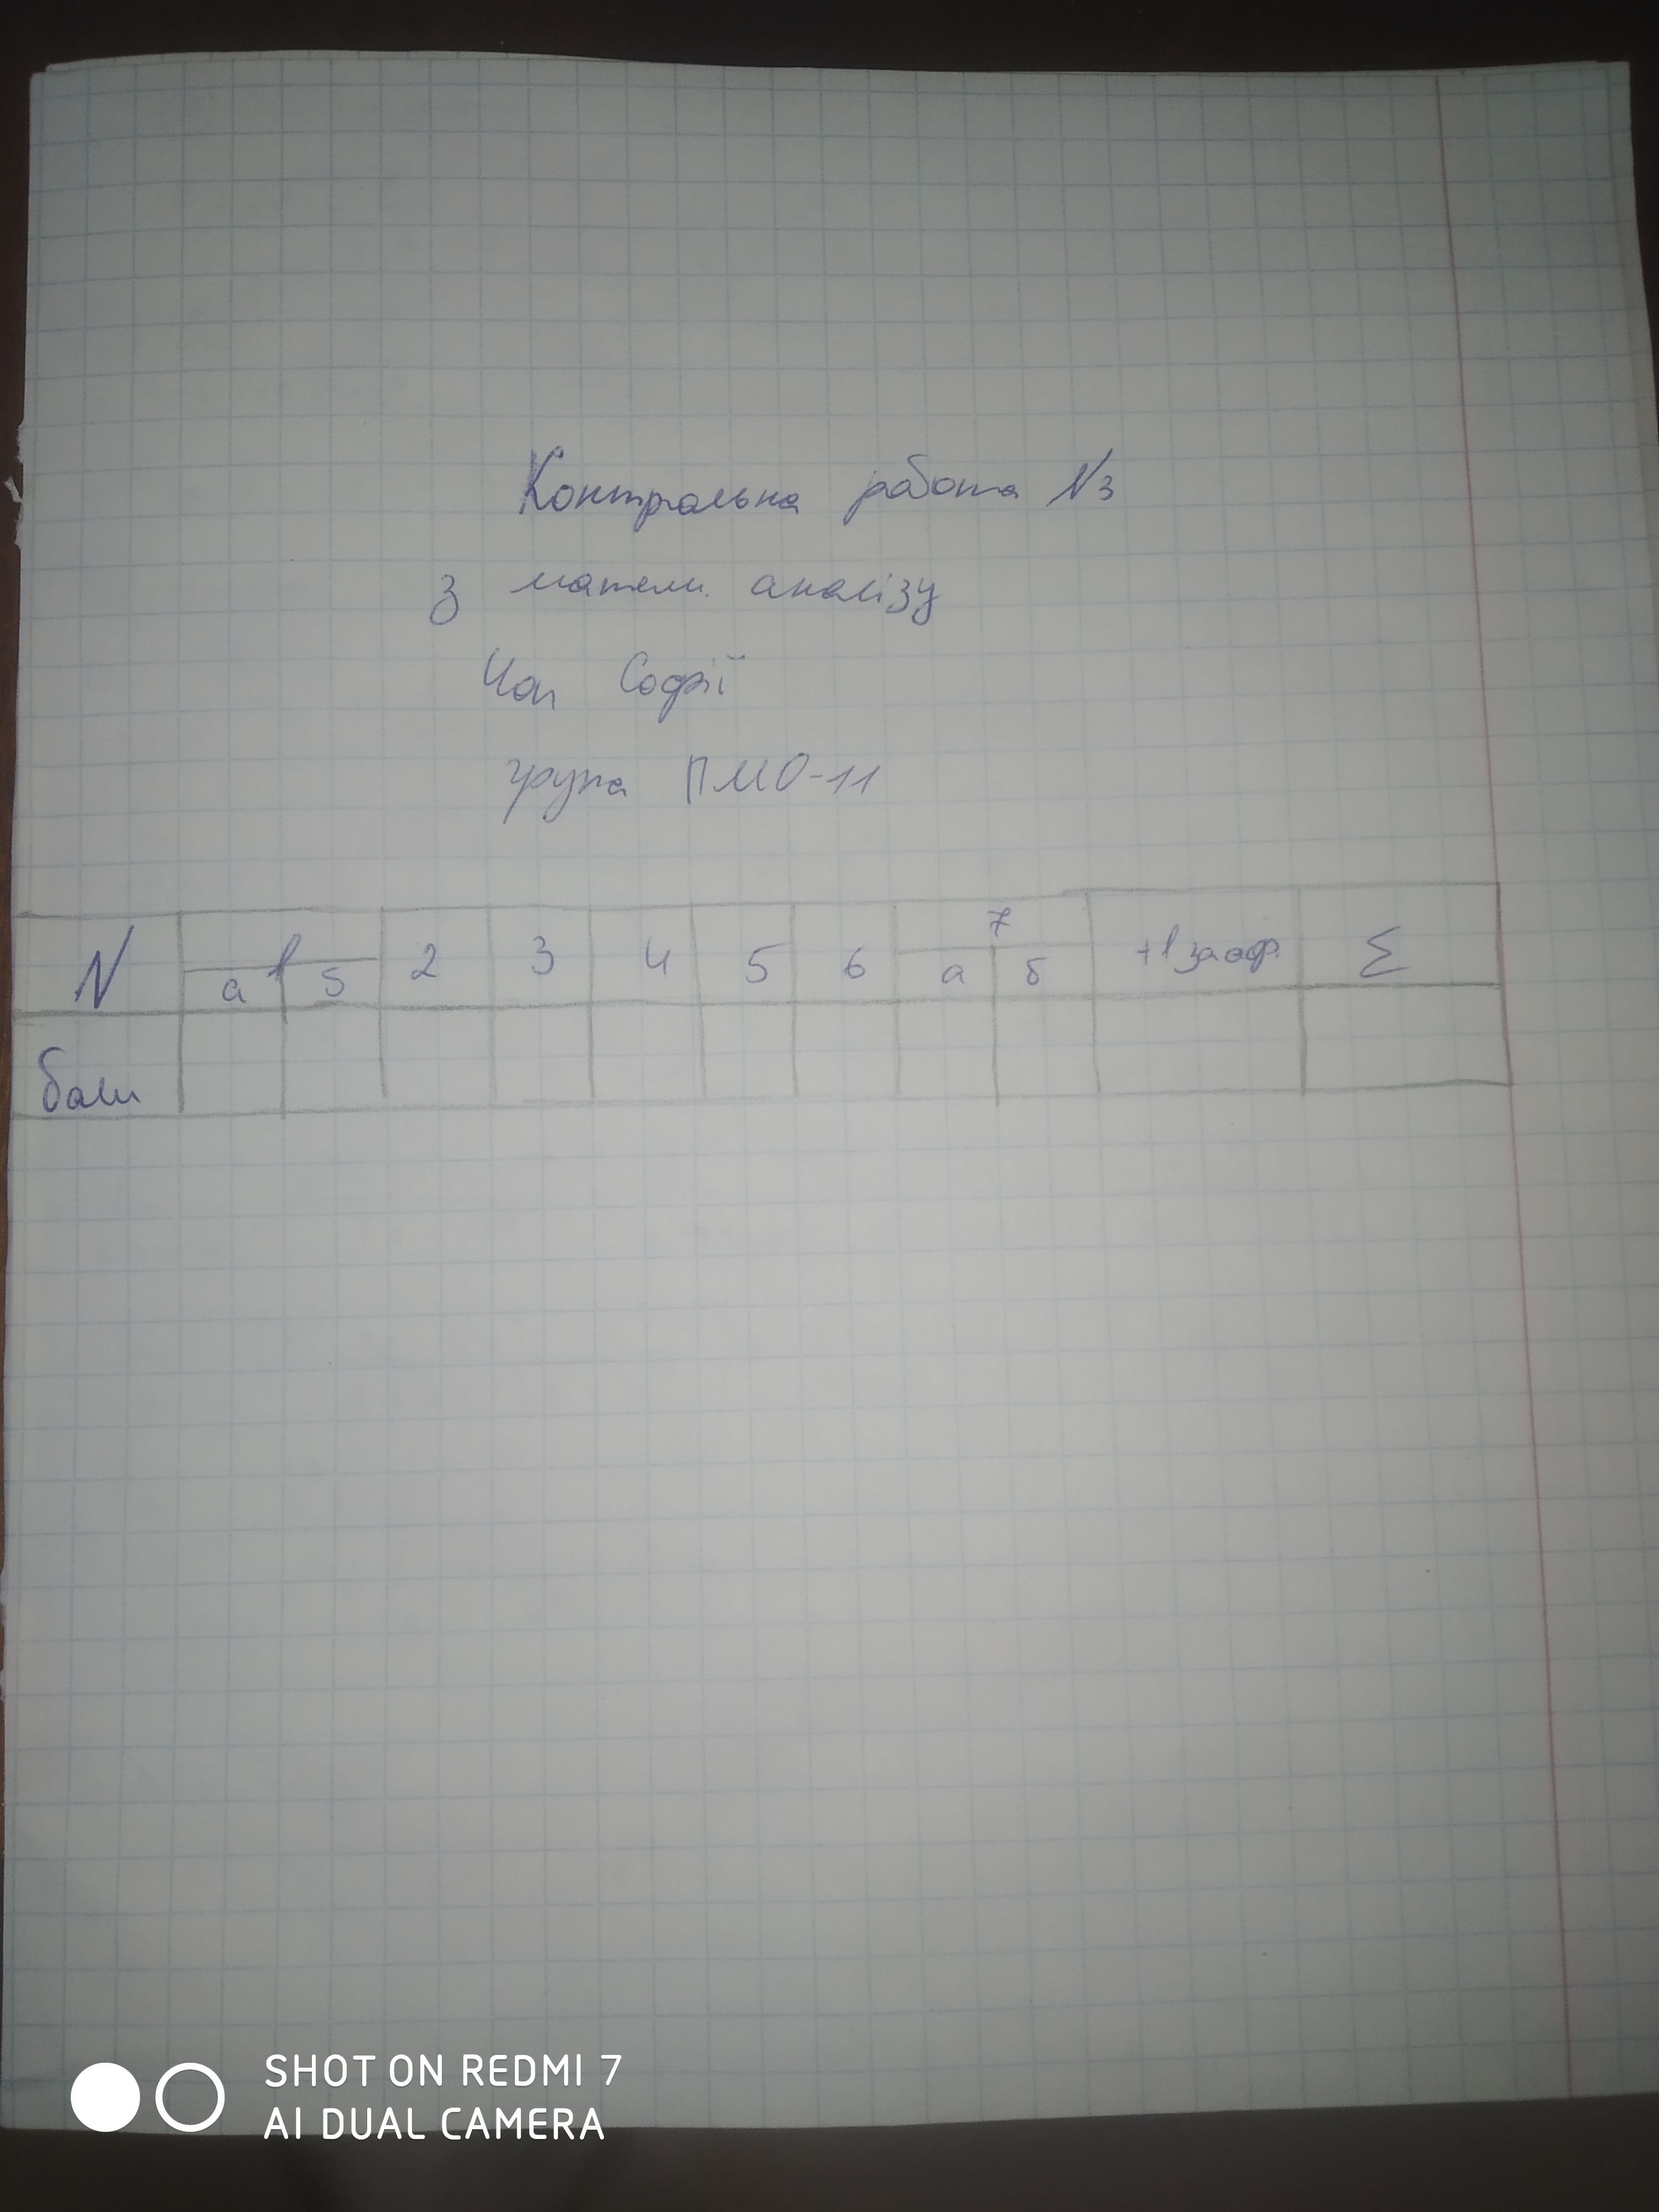 Контрольна робота N3
з матем. аналізу
Чоп Софії
група ПМО-11
N 1 2 3 4 5 6 7 +1 за оф. Σ
а б а б
бали
SHOT ON REDMI 7
AI DUAL CAMERA